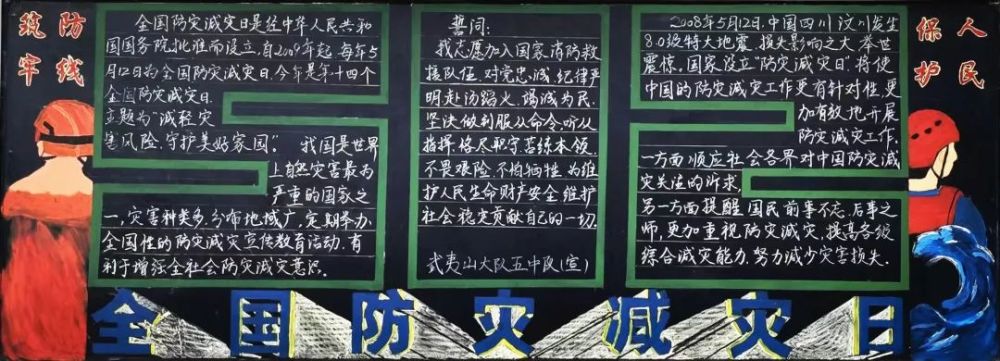 筑防
牢线
全国防灾减灾日是经中华人民共和
国国务院批准而设立,自2009年起,每年5
月12日为全国防灾减灾日,今年是第十四个
全国防灾减灾日.
主题为“减轻灾
害风险,守护美好家园”. 我国是世界
上自然灾害最为
严重的国家之
一,灾害种类多,分布地域广,定期举办
全国性的防灾减灾宣传教育活动,有
利于增强全社会防灾减灾意识.
誓词:
我志愿加入国家消防救
援队伍,对党忠诚,纪律严
明,赴汤蹈火,竭诚为民,
坚决做到服从命令,听从
指挥,恪尽职守,苦练本领,
不畏艰险,不怕牺牲,为维
护人民生命财产安全,维护
社会稳定贡献自己的一切.
武夷山大队五中队(宣)
2008年5月12日,中国四川汶川发生
8.0级特大地震,损失影响之大,举世
震惊.国家设立“防灾减灾日”将使
中国的防灾减灾工作更有针对性,更
加有效地开展
防灾减灾工作.
一方面顺应社会各界对中国防灾减
灾关注的诉求,
另一方面提醒国民前事不忘,后事之
师,更加重视防灾减灾,提高各级
综合减灾能力,努力减少灾害损失.
保人
护民
全国防灾减灾日